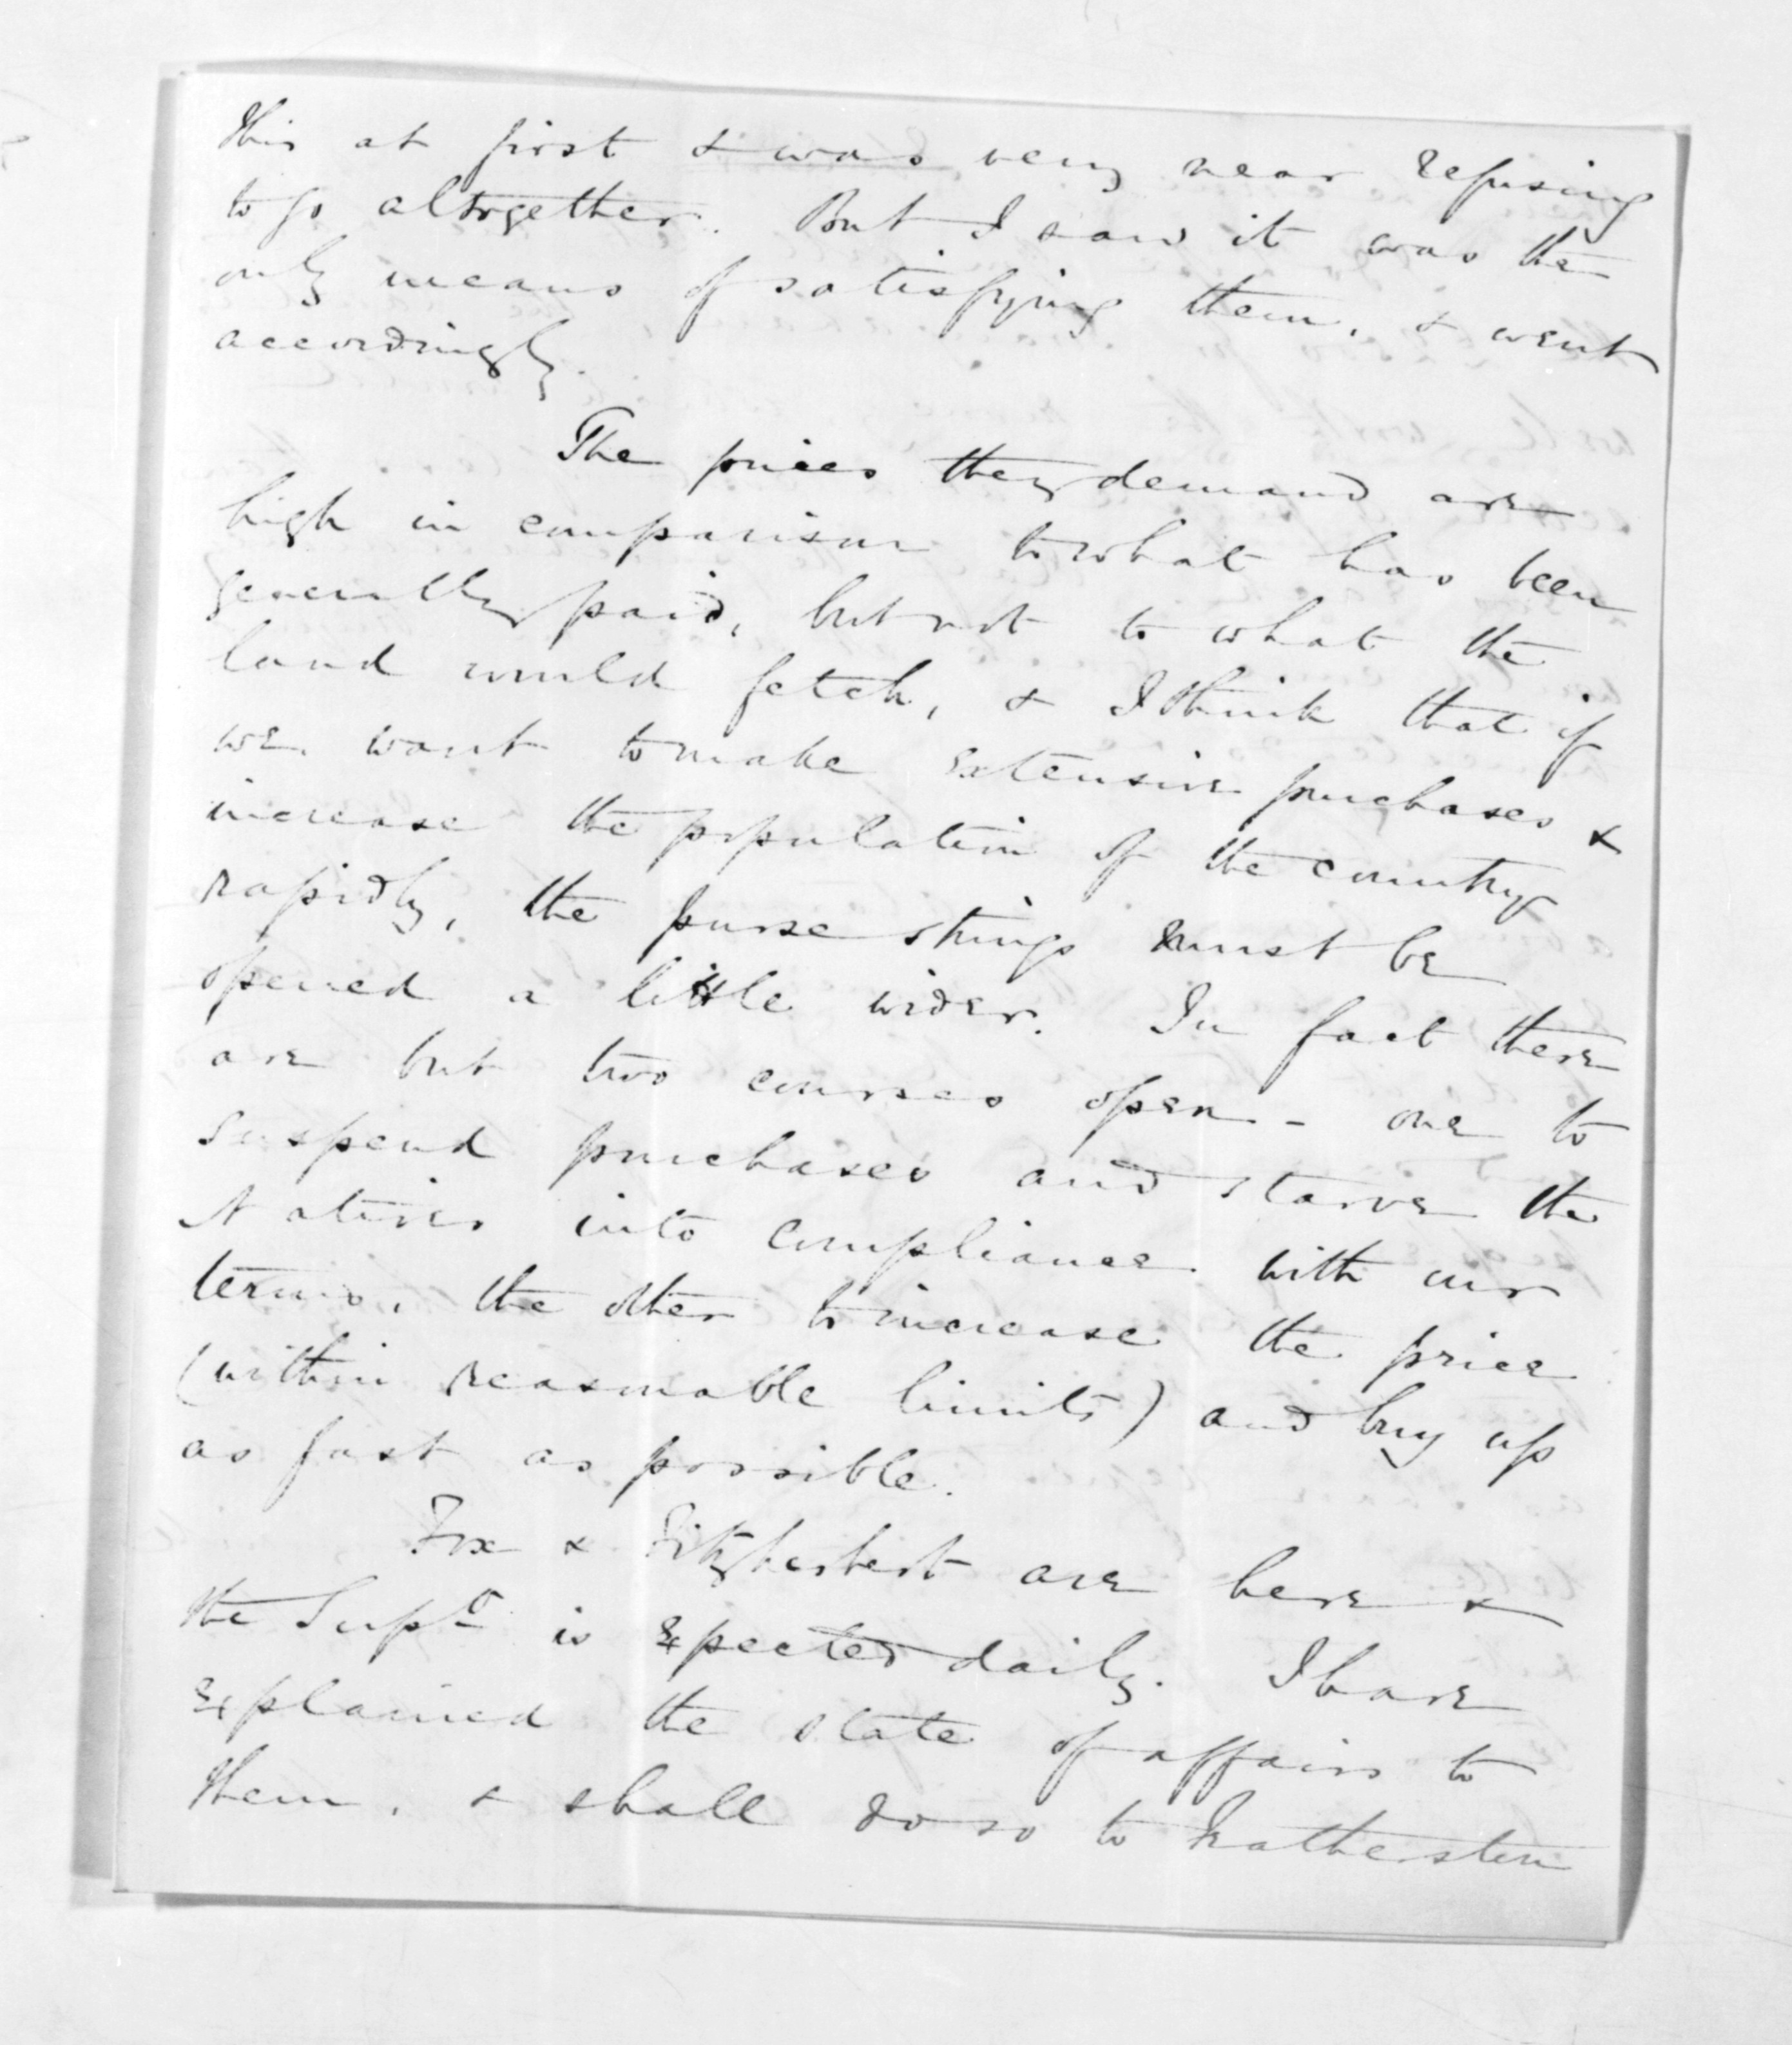 this at first & was very near refusing
to go altogether. But I saw it was the
only means of satisfying them, & went
accordingly.
The prices they demand are
high in comparison to what has been
generally paid, but not to what the
land would fetch, & I think that if
we want to make extensive purchases &
increase the population of the country
rapidly, the purse strings must be
opened a little wider. In fact there
are but two courses open - one to
suspend purchases and starve the
Natives into compliance with our
terms, the other to increase the price
(within reasonable limits) and buy up
as fast as possible.
Fox & Fitzherbert are here &
the Supt is expected daily. I have
explained the state of affairs to
them, & shall do so to Featherston